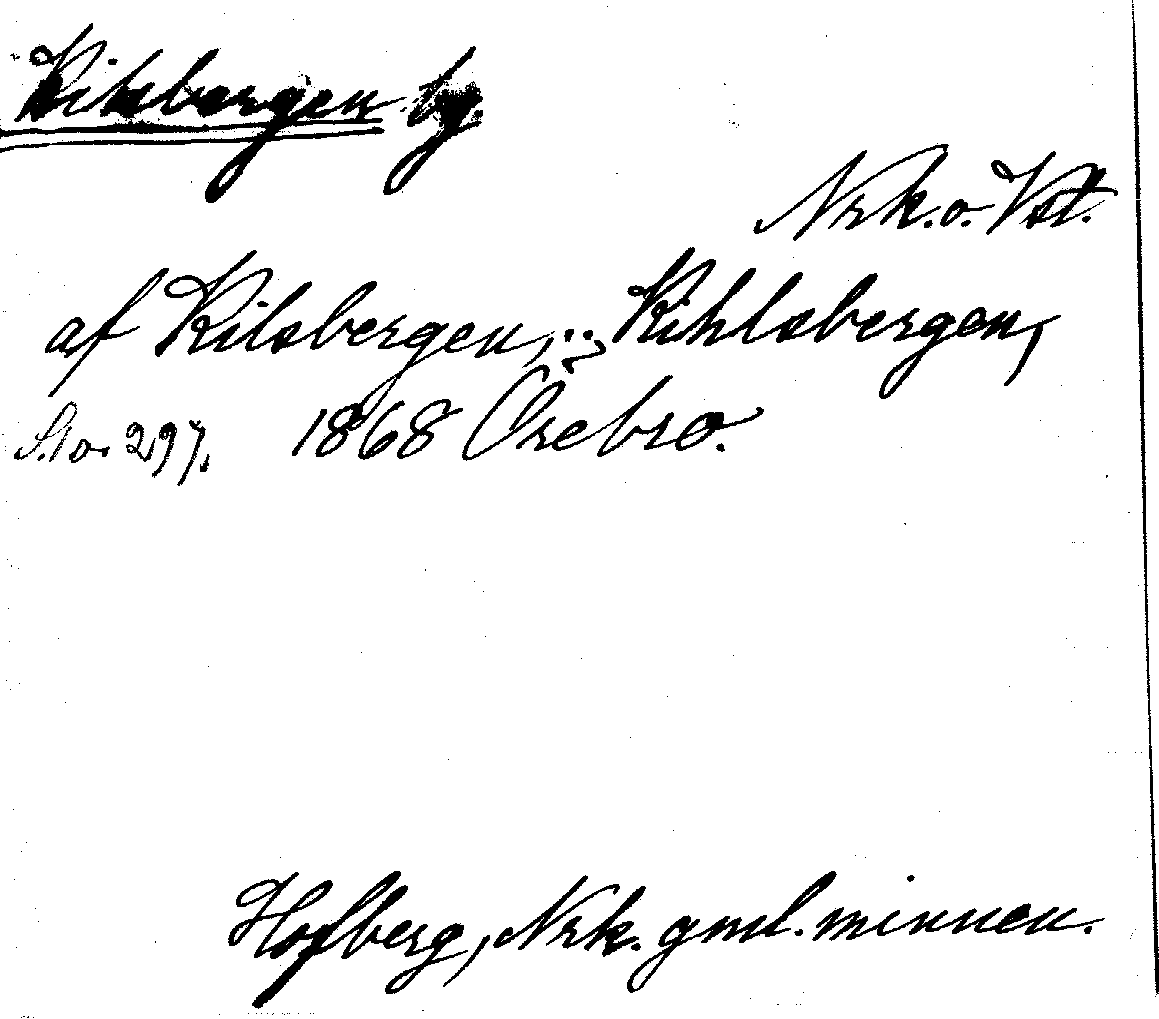 Kilsbergen bg.
Nrk. o. Vstl.
af Kilsbergen, Kihlsbergen,
Sid. 297. 1868 Örebro.
Hofberg, Nrk. gml. minnen.